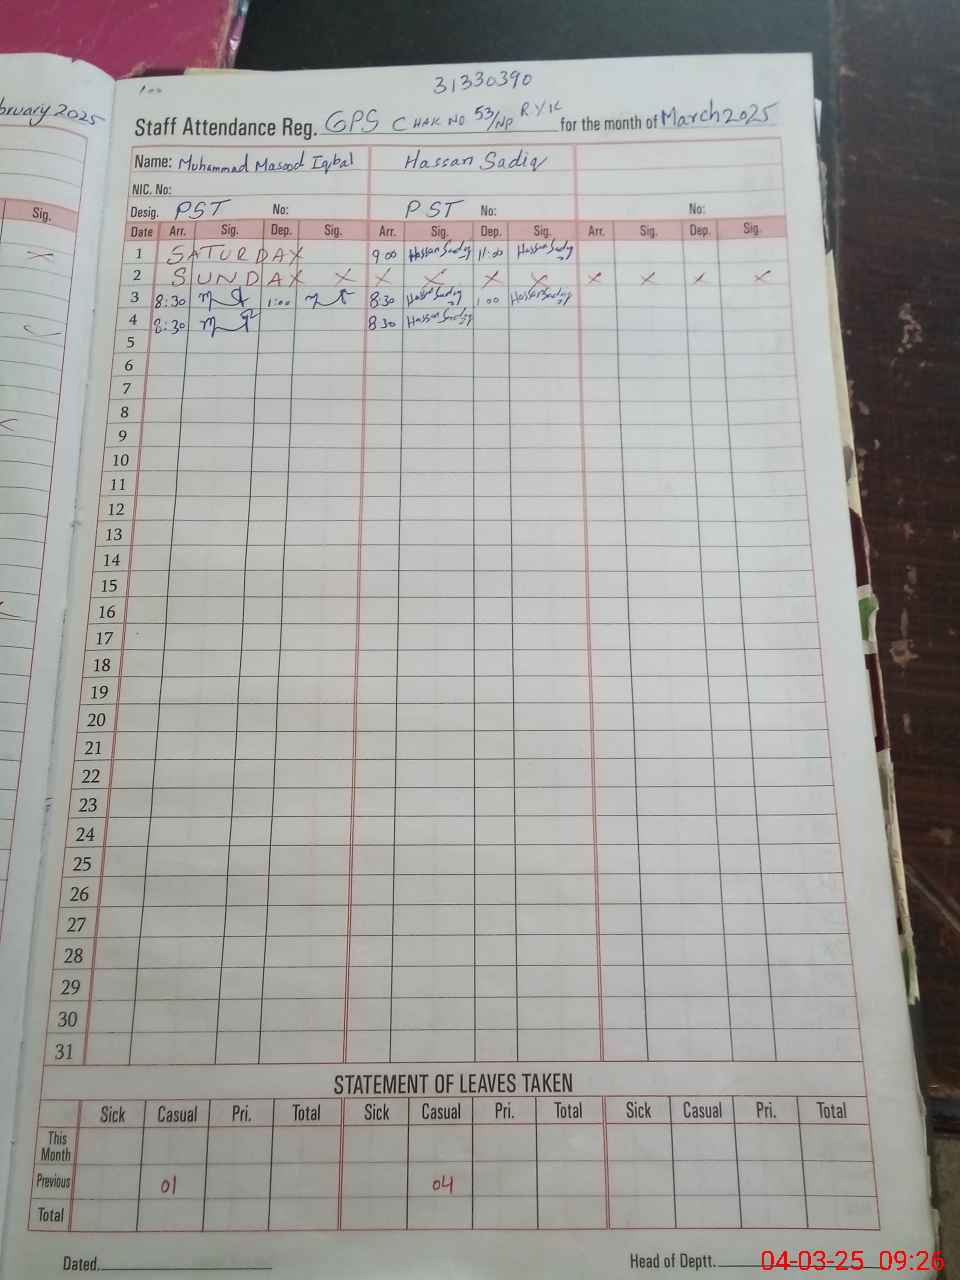 31330390
bruary 2025
Staff Attendance Reg. GPS CHAK NO 53/NP RYK for the month of March 2025
Name: Muhammad Masood Iqbal Hassan Sadiq
NIC. No:
Desig. PST No: PST No: No:
Sig.
Date Arr. Sig. Dep. Sig. Arr. Sig. Dep. Sig. Arr. Sig. Dep. Sig.
1 SATURDAY 9 00 Hassan Sadiq 11:00 Hassan Sadiq
2 SUNDAY X X X X X X X X X
3 8:30 1:00 8:30 Hassan Sadiq 1:00 Hassan Sadiq
4 8:30 8 30 Hassan Sadiq
5
6
7
8
9
10
11
12
13
14
15
16
17
18
19
20
21
22
23
24
25
26
27
28
29
30
31
STATEMENT OF LEAVES TAKEN
Sick Casual Pri. Total Sick Casual Pri. Total Sick Casual Pri. Total
This
Month
Previous 01 04
Total
Dated. Head of Deptt.
04-03-25 09:26